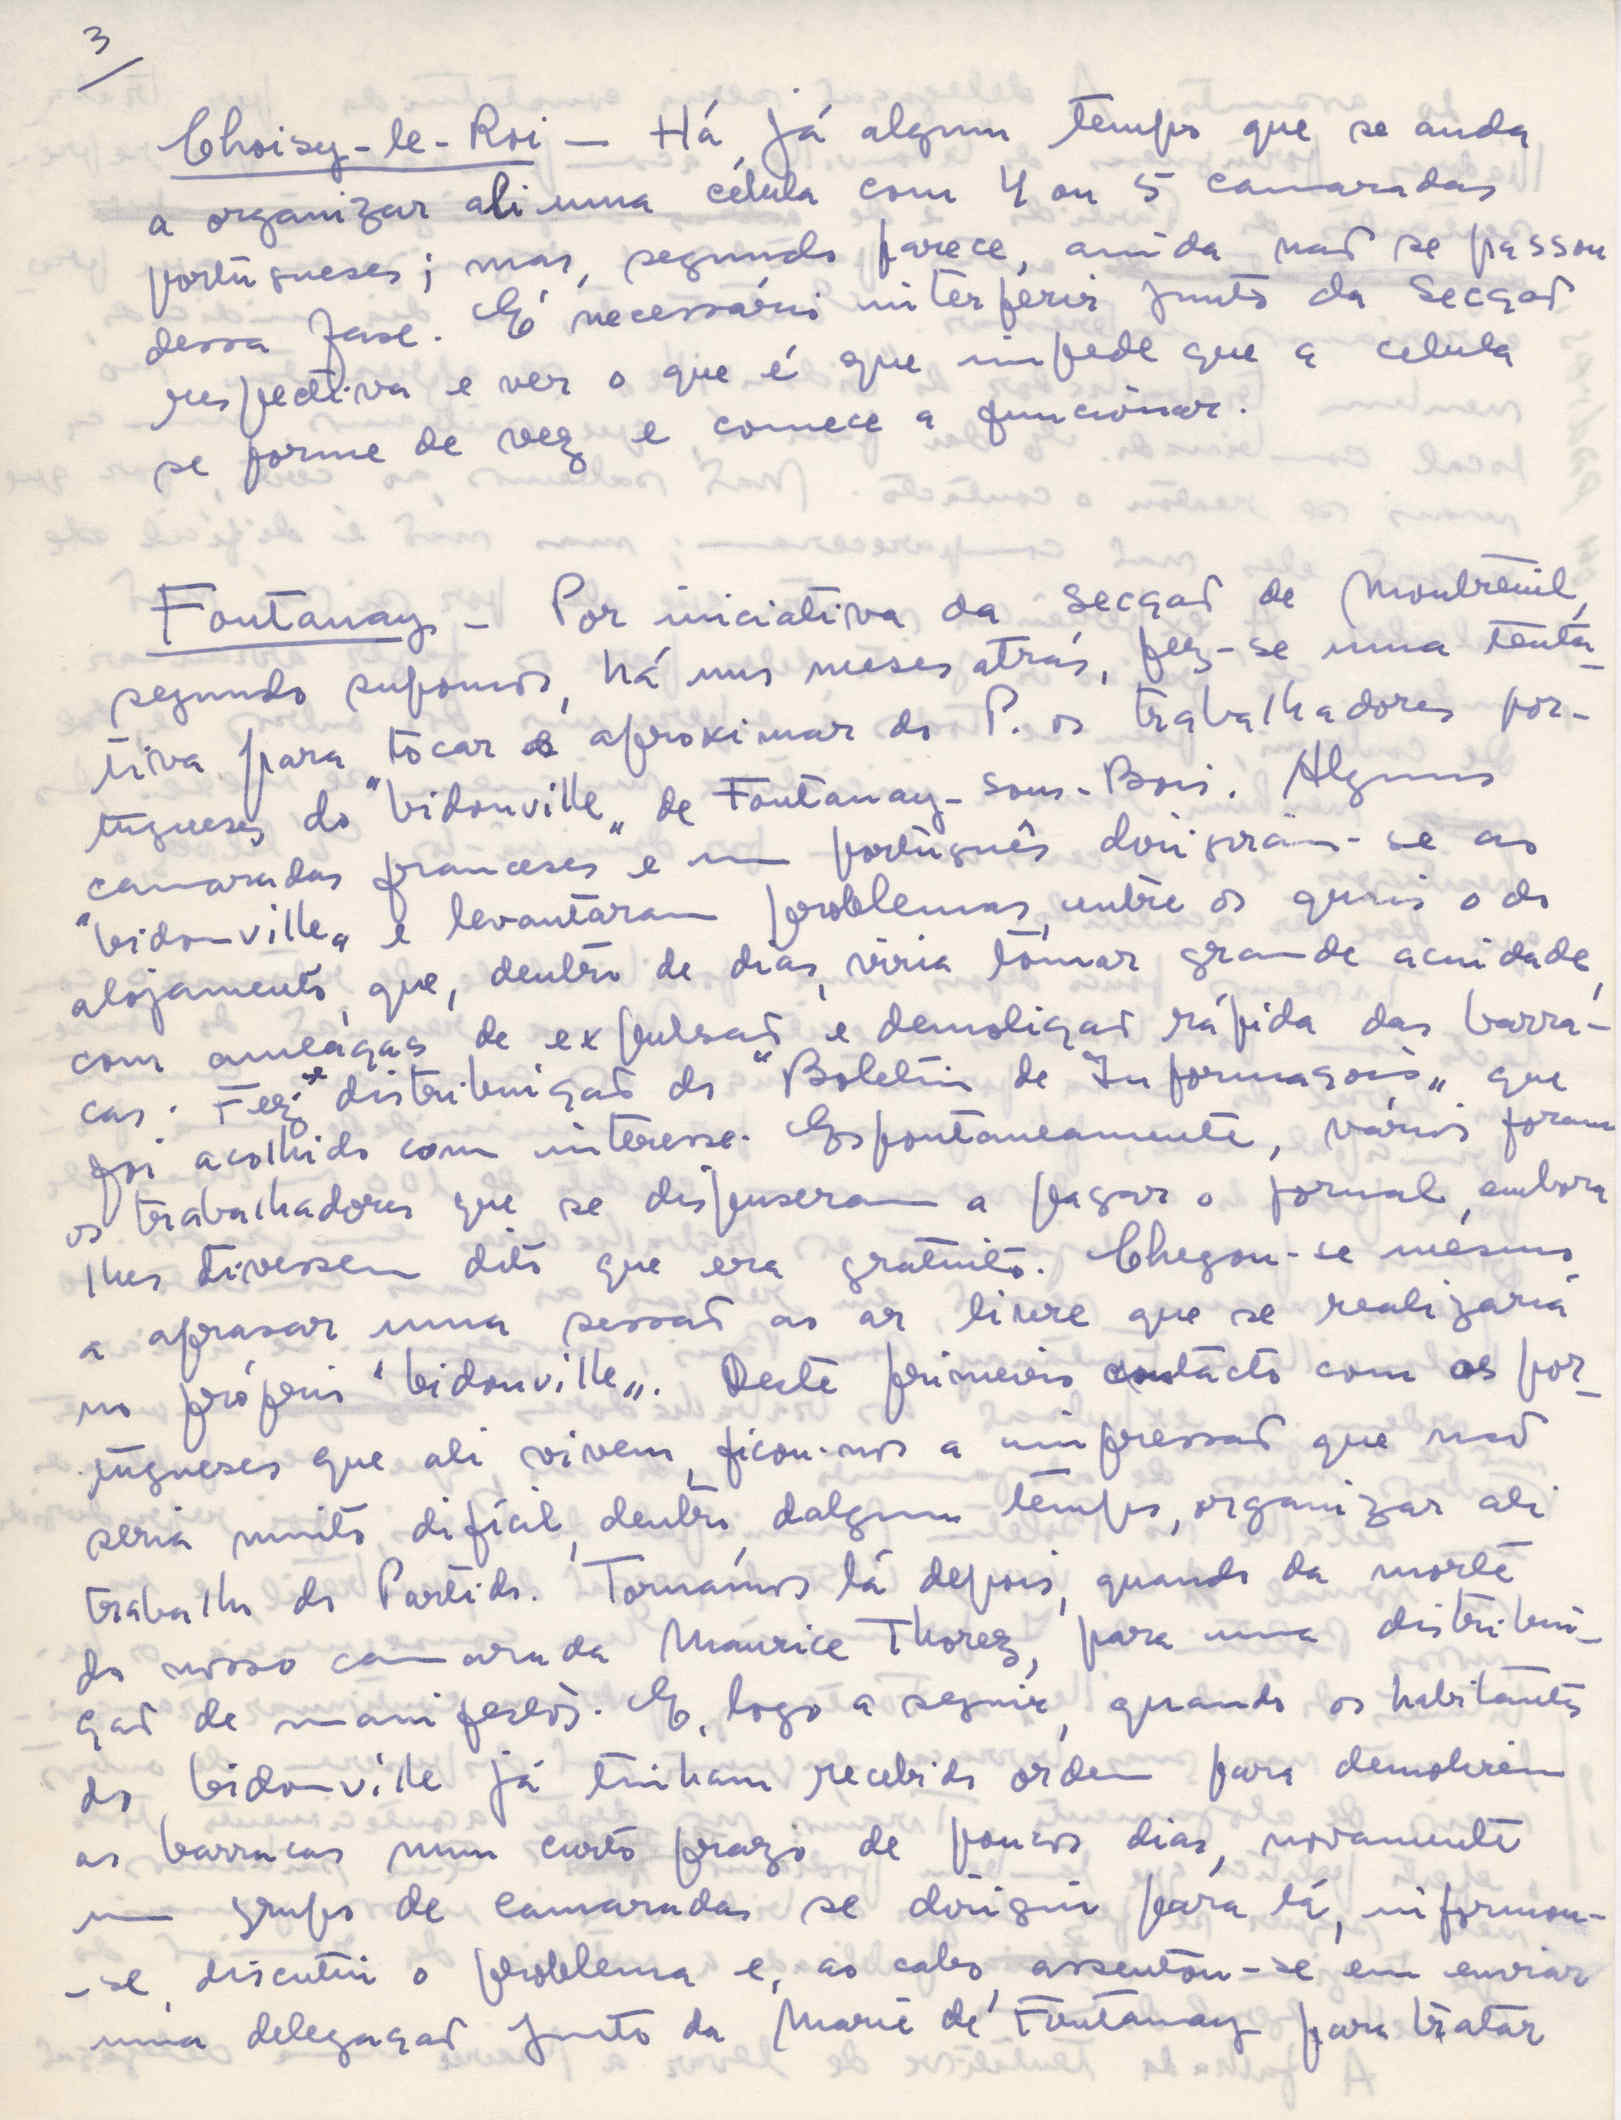 3
Choisy-le-Roi — Há já algum tempo que se anda
a organizar ali uma célula com 4 ou 5 camaradas
portugueses; mas, segundo parece, ainda não se passou
dessa fase. É necessário interferir junto da Secção
respectiva e ver o que é que impede que a celula
se forme de vez e comece a funcionar.
Fontanay - Por iniciativa da Secção de Montreuil,
segundo supomos, há uns meses atrás, fez-se uma tenta-
tiva para tocar e aproximar do P. os trabalhadores por-
tugueses do "bidonville" de Fontanay-sous-Bois. Alguns
camaradas franceses e um português dirigiram-se ao
"bidonville" e levantaram problemas, entre os quais o do
alojamento, que, dentro de dias, viria tomar grande acuidade,
com ameaças de expulsão e demolição rápida das barra-
cas. Fez-se distribuição do "Boletim de Informações" que
foi acolhido com interesse. Espontaneamente, vários foram
os trabalhadores que se dispuseram a pagar o jornal, embora
lhes tivessem dito que era gratuito. Chegou-se mesmo
a aprasar uma sessão ao ar livre que se realizaria
no próprio "bidonville". Deste primeiro contacto com os por-
tugueses que ali vivem, ficou-nos a impressão que não
seria muito difícil, dentro dalgum tempo, organizar ali
trabalho do Partido. Tornámos lá depois, quando da morte
do nosso camarada Maurice Thorez, para uma distribui-
ção de manifestos. E, logo a seguir, quando os habitantes
do bidonville já tinham recebido ordem para demolirem
as barracas num curto prazo de poucos dias, novamente
um grupo de camaradas se dirigiu para lá, informou-
-se, discutiu o problema e, ao cabo, assentou-se em enviar
uma delegação junto da Marie de Fontanay para tratar